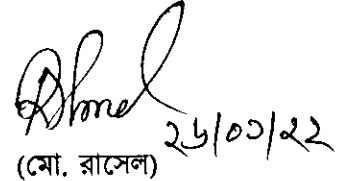 ২৬/০১/২২
(মো. রাসেল)